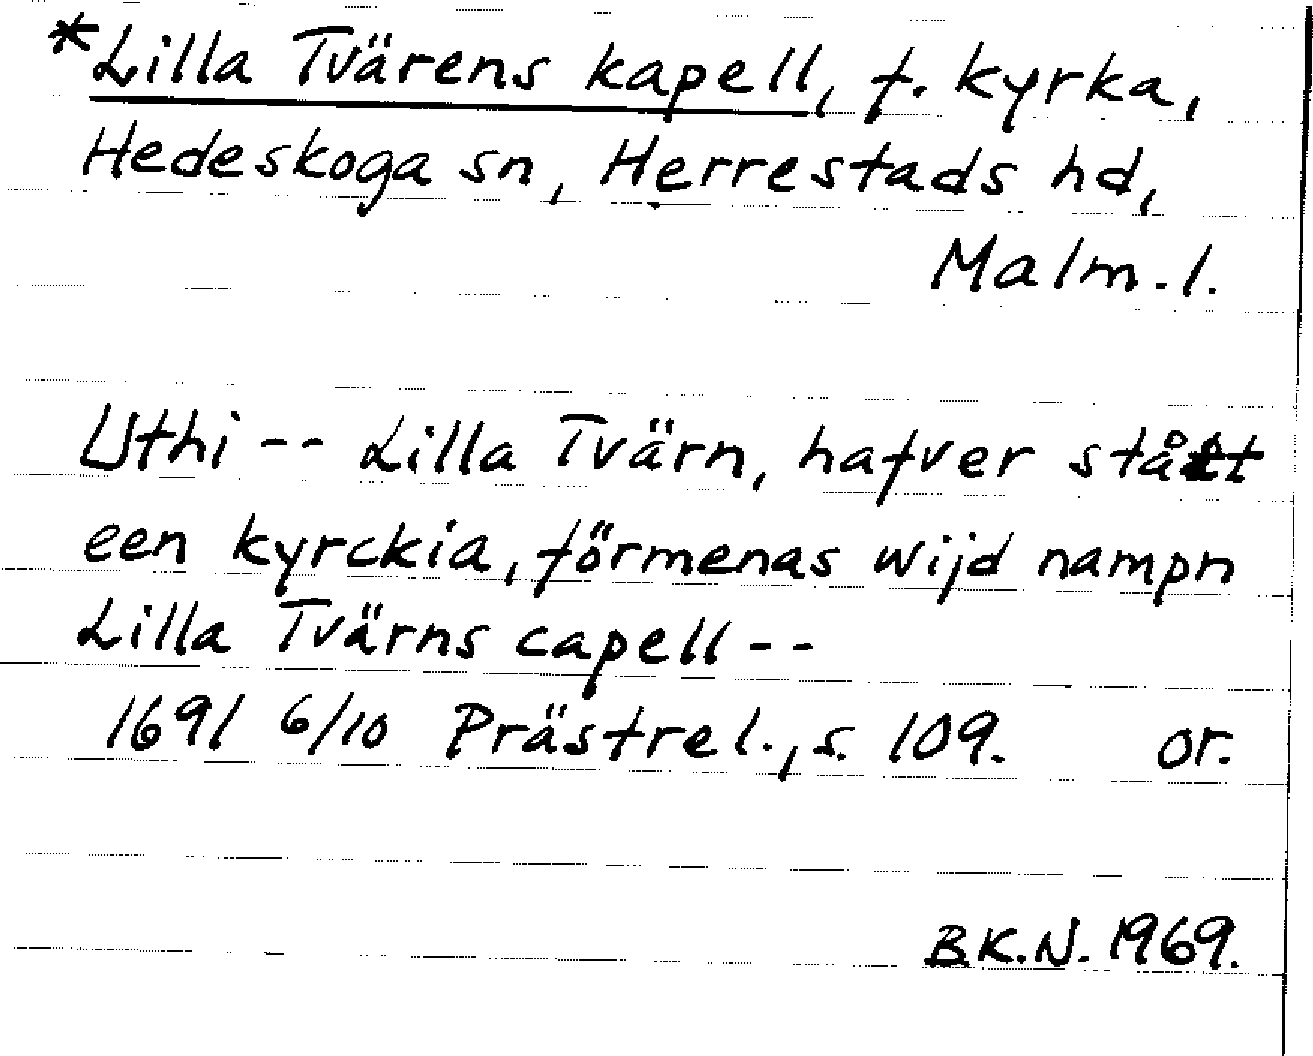 *Lilla Tvärens kapell, f. kyrka,
Hedeskoga sn, Herrestads hd,
Malm.l.
Uthi -- Lilla Tvärn, hafver stått
een kyrckia, förmenas wijd nampn
Lilla Tvärns capell --
1691 6/10 Prästrel., s. 109. or.
BK.N. 1969.